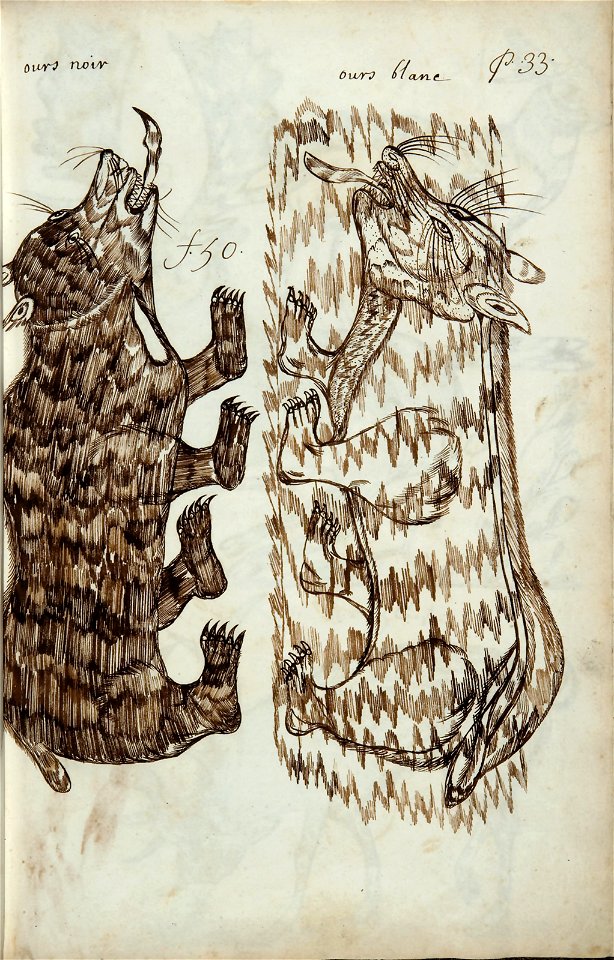 ours noir
ours blanc
P. 33.
f. 50.